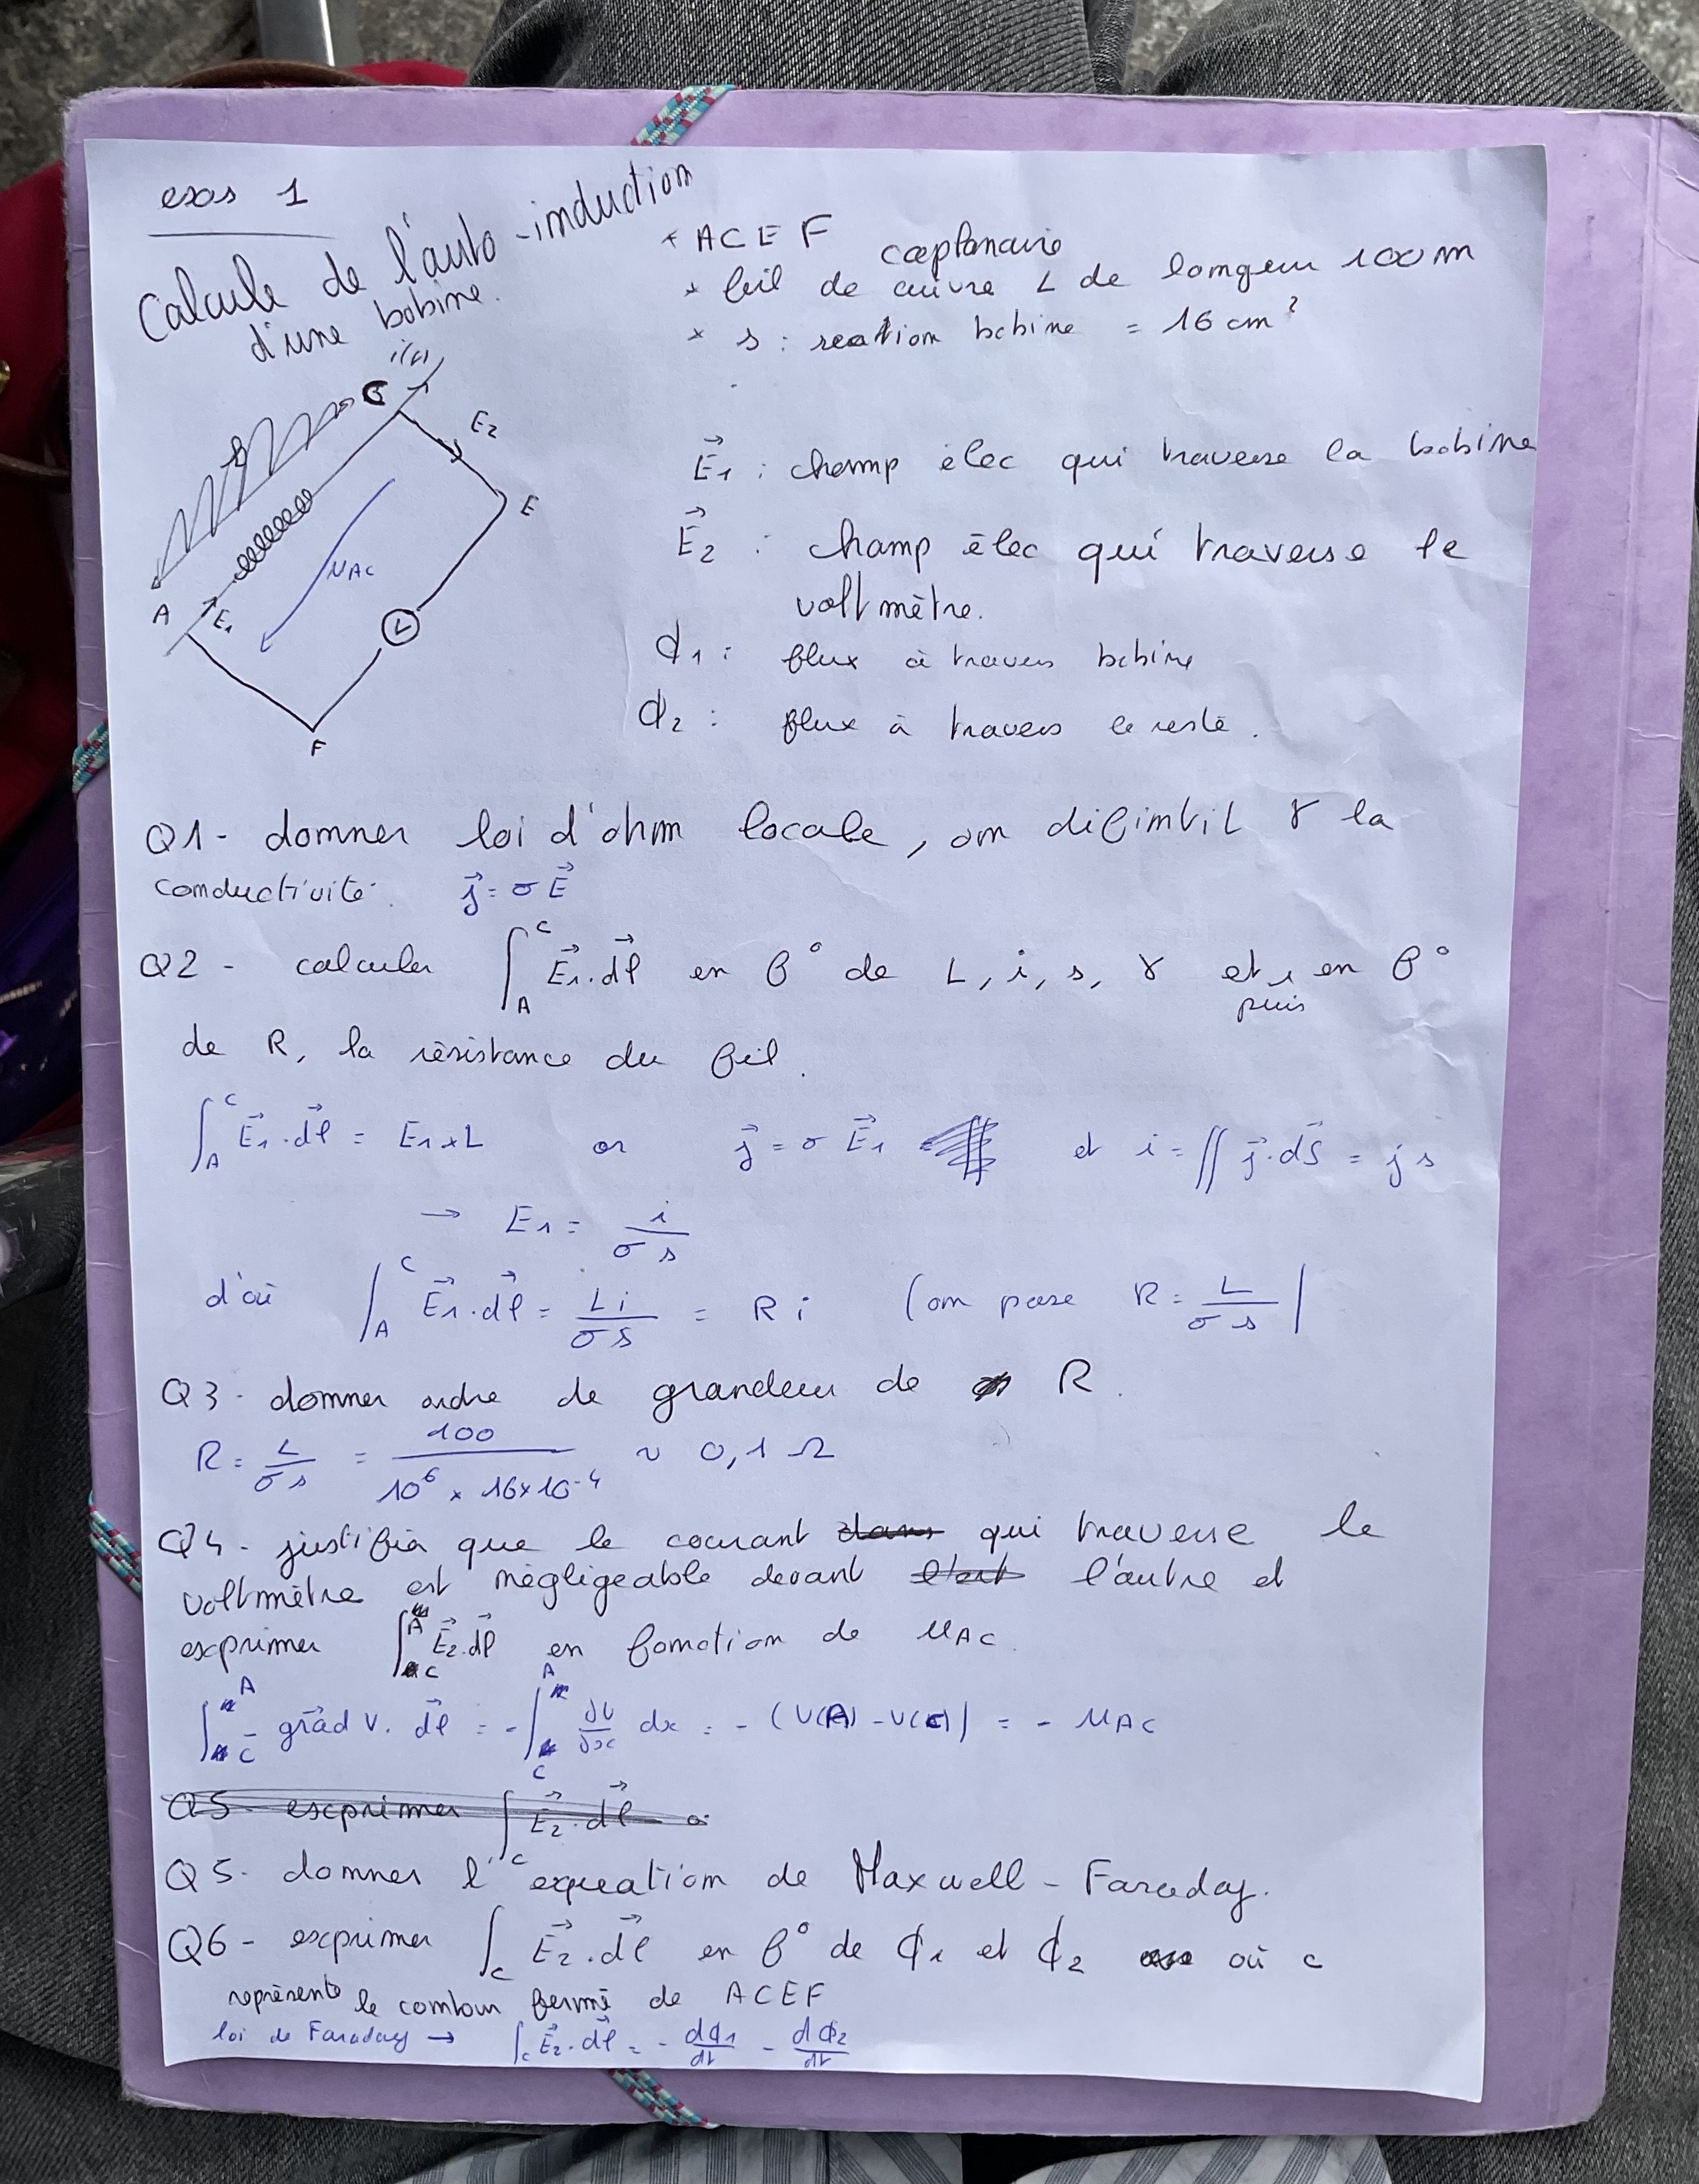 exos 1
Calcule de l'auto-induction
d'une bobine.
* ACEF coplanaire
* fil de cuivre L de longeur 100 m
* s : section bobine = 16 cm²
i(t)
C
E2
E
UAC
A
E1
V
F
E⃗1 : champ élec qui traverse la bobine
E⃗2 : champ élec qui traverse le
voltmètre.
ϕ1 : flux à travers bobine
ϕ2 : flux à travers le reste.
Q1- donner loi d'ohm locale, on définit γ la
conductivité. j⃗ = σ E⃗
Q2 - calculer ∫_A^C E⃗1.dl⃗ en f° de L, i, s, γ et puis en f°
de R, la résistance du fil.
∫_A^C E⃗1.dl⃗ = E1 × L or j⃗ = σ E⃗1 et i = ∬ j⃗.dS⃗ = j s
→ E1 = i / σ s
d'où ∫_A^C E⃗1.dl⃗ = L i / σ s = R i (on pose R = L / σ s)
Q3- donner ordre de grandeur de R.
R = L / σ s = 100 / 10⁶ × 16×10⁻⁴ ~ 0,1 Ω
Q4- justifier que le courant qui traverse le
voltmètre est négligeable devant l'autre et
exprimer ∫_C^A E⃗2.dl⃗ en fonction de UAC.
∫_C^A - grad⃗ V. dl⃗ = - ∫_C^A ∂V/∂x dx = - (V(A) - V(C)) = - UAC
Q5- exprimer ∫_C E⃗2.dl⃗
Q5- donner l'equation de Maxwell-Faraday.
Q6- exprimer ∫_C E⃗2.dl⃗ en f° de ϕ1 et ϕ2 où c
représente le contour fermé de ACEF
loi de Faraday → ∫_C E⃗2.dl⃗ = - dϕ1/dt - dϕ2/dt